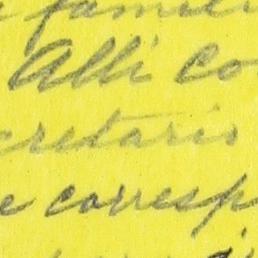 famil
Alli co
cretario
e corresp